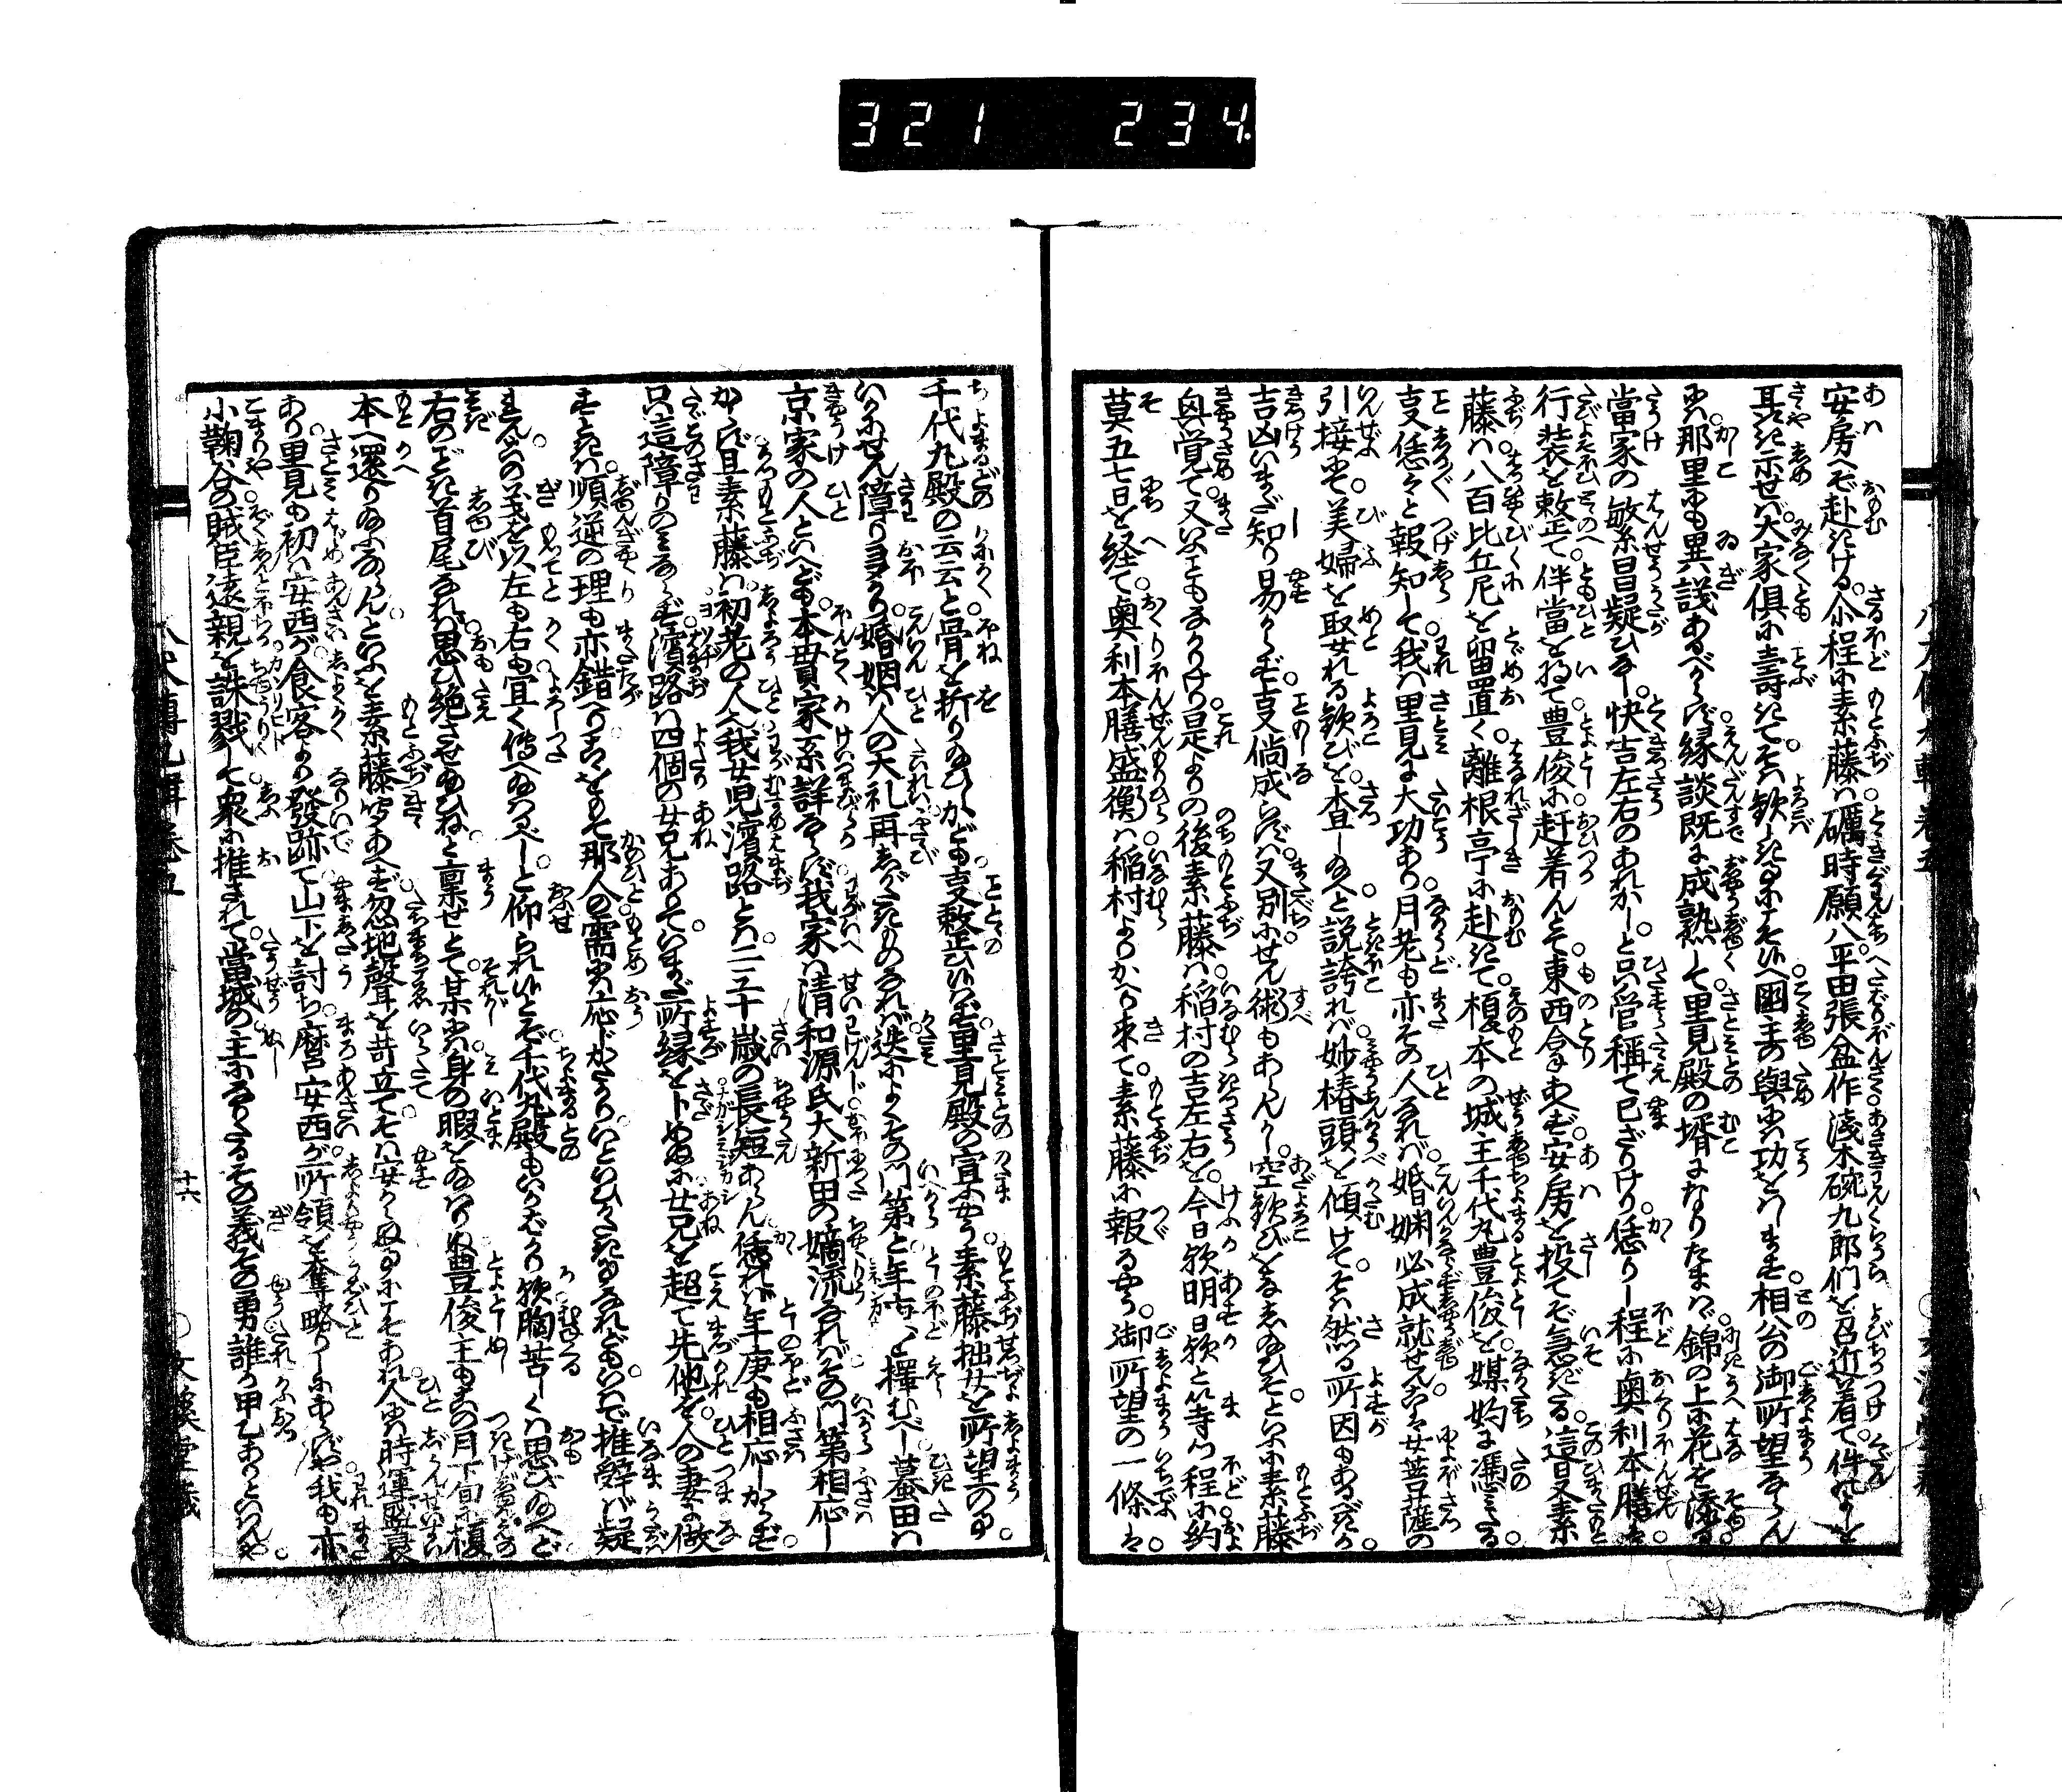 321 234.
安房へぞ赴きける。介程に素藤は礪時願八平田張盆作浅木碗九郎們を召近着て件のよしを
其に示せば大家倶に壽きて。そは歓しきことにこそ候へ。国主の輿は功をいはまも。相公の御所望ならんには。
那里にも異議あるべからず。縁談既に成熟して里見殿の壻になりたまはゞ錦の上に花を添る。
當家の敏系昌疑ひなし。快吉左右のあれかしと只管稱て已ざりけり。恁りし程に奥利本膳は。
行装を整正て伴當を将て豊俊に赶着んとて東西拿あへず。安房を投てぞ急ぎたる。這日又素
藤は八百比丘尼を留置く離根亭に赴きて榎本の城主千代丸豊俊を媒妁に憑みたる
事恁々と報知して我は里見に大功あり。月老も亦その人なれば婚姻必成就せん。こは女菩薩の
引接にて美婦を取せれる歓びを査し給へと説誇れば妙椿頭を傾けて。そは然る所因もあるべきか。
吉凶いまだ知り易からず。事倘成らずは又別にせん術もあらんか。空歓びをなし給ひそといふに素藤
興覚て又いふこともなかりけり。是よりの後素藤は稲村の吉左右を。今日歟明日歟と等つ程に約
莫五七日を経て。奥利本膳盛衡は稲村よりかへり来て。素藤に報るやう。御所望の一條は。
千代丸殿の云云と骨を折り給ひしかども。事整ひ候はず。里見殿の宣ふやう。素藤拙女を所望のよし。
いかにせん障り多かり。婚姻は人の大礼再しがたきものなれば。迭によくその門第と年歯を擇むべし。蟇田は
京家の人といへども。本貫家系詳ならず。我家は清和源氏大新田の嫡流なれば。その門第相応し
からず。且素藤は初老の人也。我女児濱路とは二三十歳の長短あらん。恁れば年庚も相応しからず。
只這障りのみならず。濱路は四個の女兄ありて。いまだ所縁を卜めぬに女兄を超て先他を。人の妻に做
すときは。順逆の理も亦錯へり。こをもて那人の需には応じがたかり。いといひがたきことなれども。いかで推辞ば疑
れん。この義を以左も右も宜く傳へ給はるべし。と仰られ候ひとぞ。千代丸殿もいかばかり歟胸苦しくは思ひ給へど
右のごとき首尾なれば思ひ絶させ給ひねと稟せとて。某には身の暇を給はりぬ。豊俊主もこの月下旬に榎
本へ還り給ふならん。といふを素藤皆まで聞あへず。忽地聲を苛立て。そは安からぬことにこそあれ。人には時運盛衰
あり。里見も初は安西が食客より發跡て山下を討ち。麿安西が所領を奪略りしにあらずや。我も亦
小鞠谷の賊臣遠親を誅戮して衆に推されて。當城の主になりたる。その義その勇誰か甲乙ありといはんや。
十六